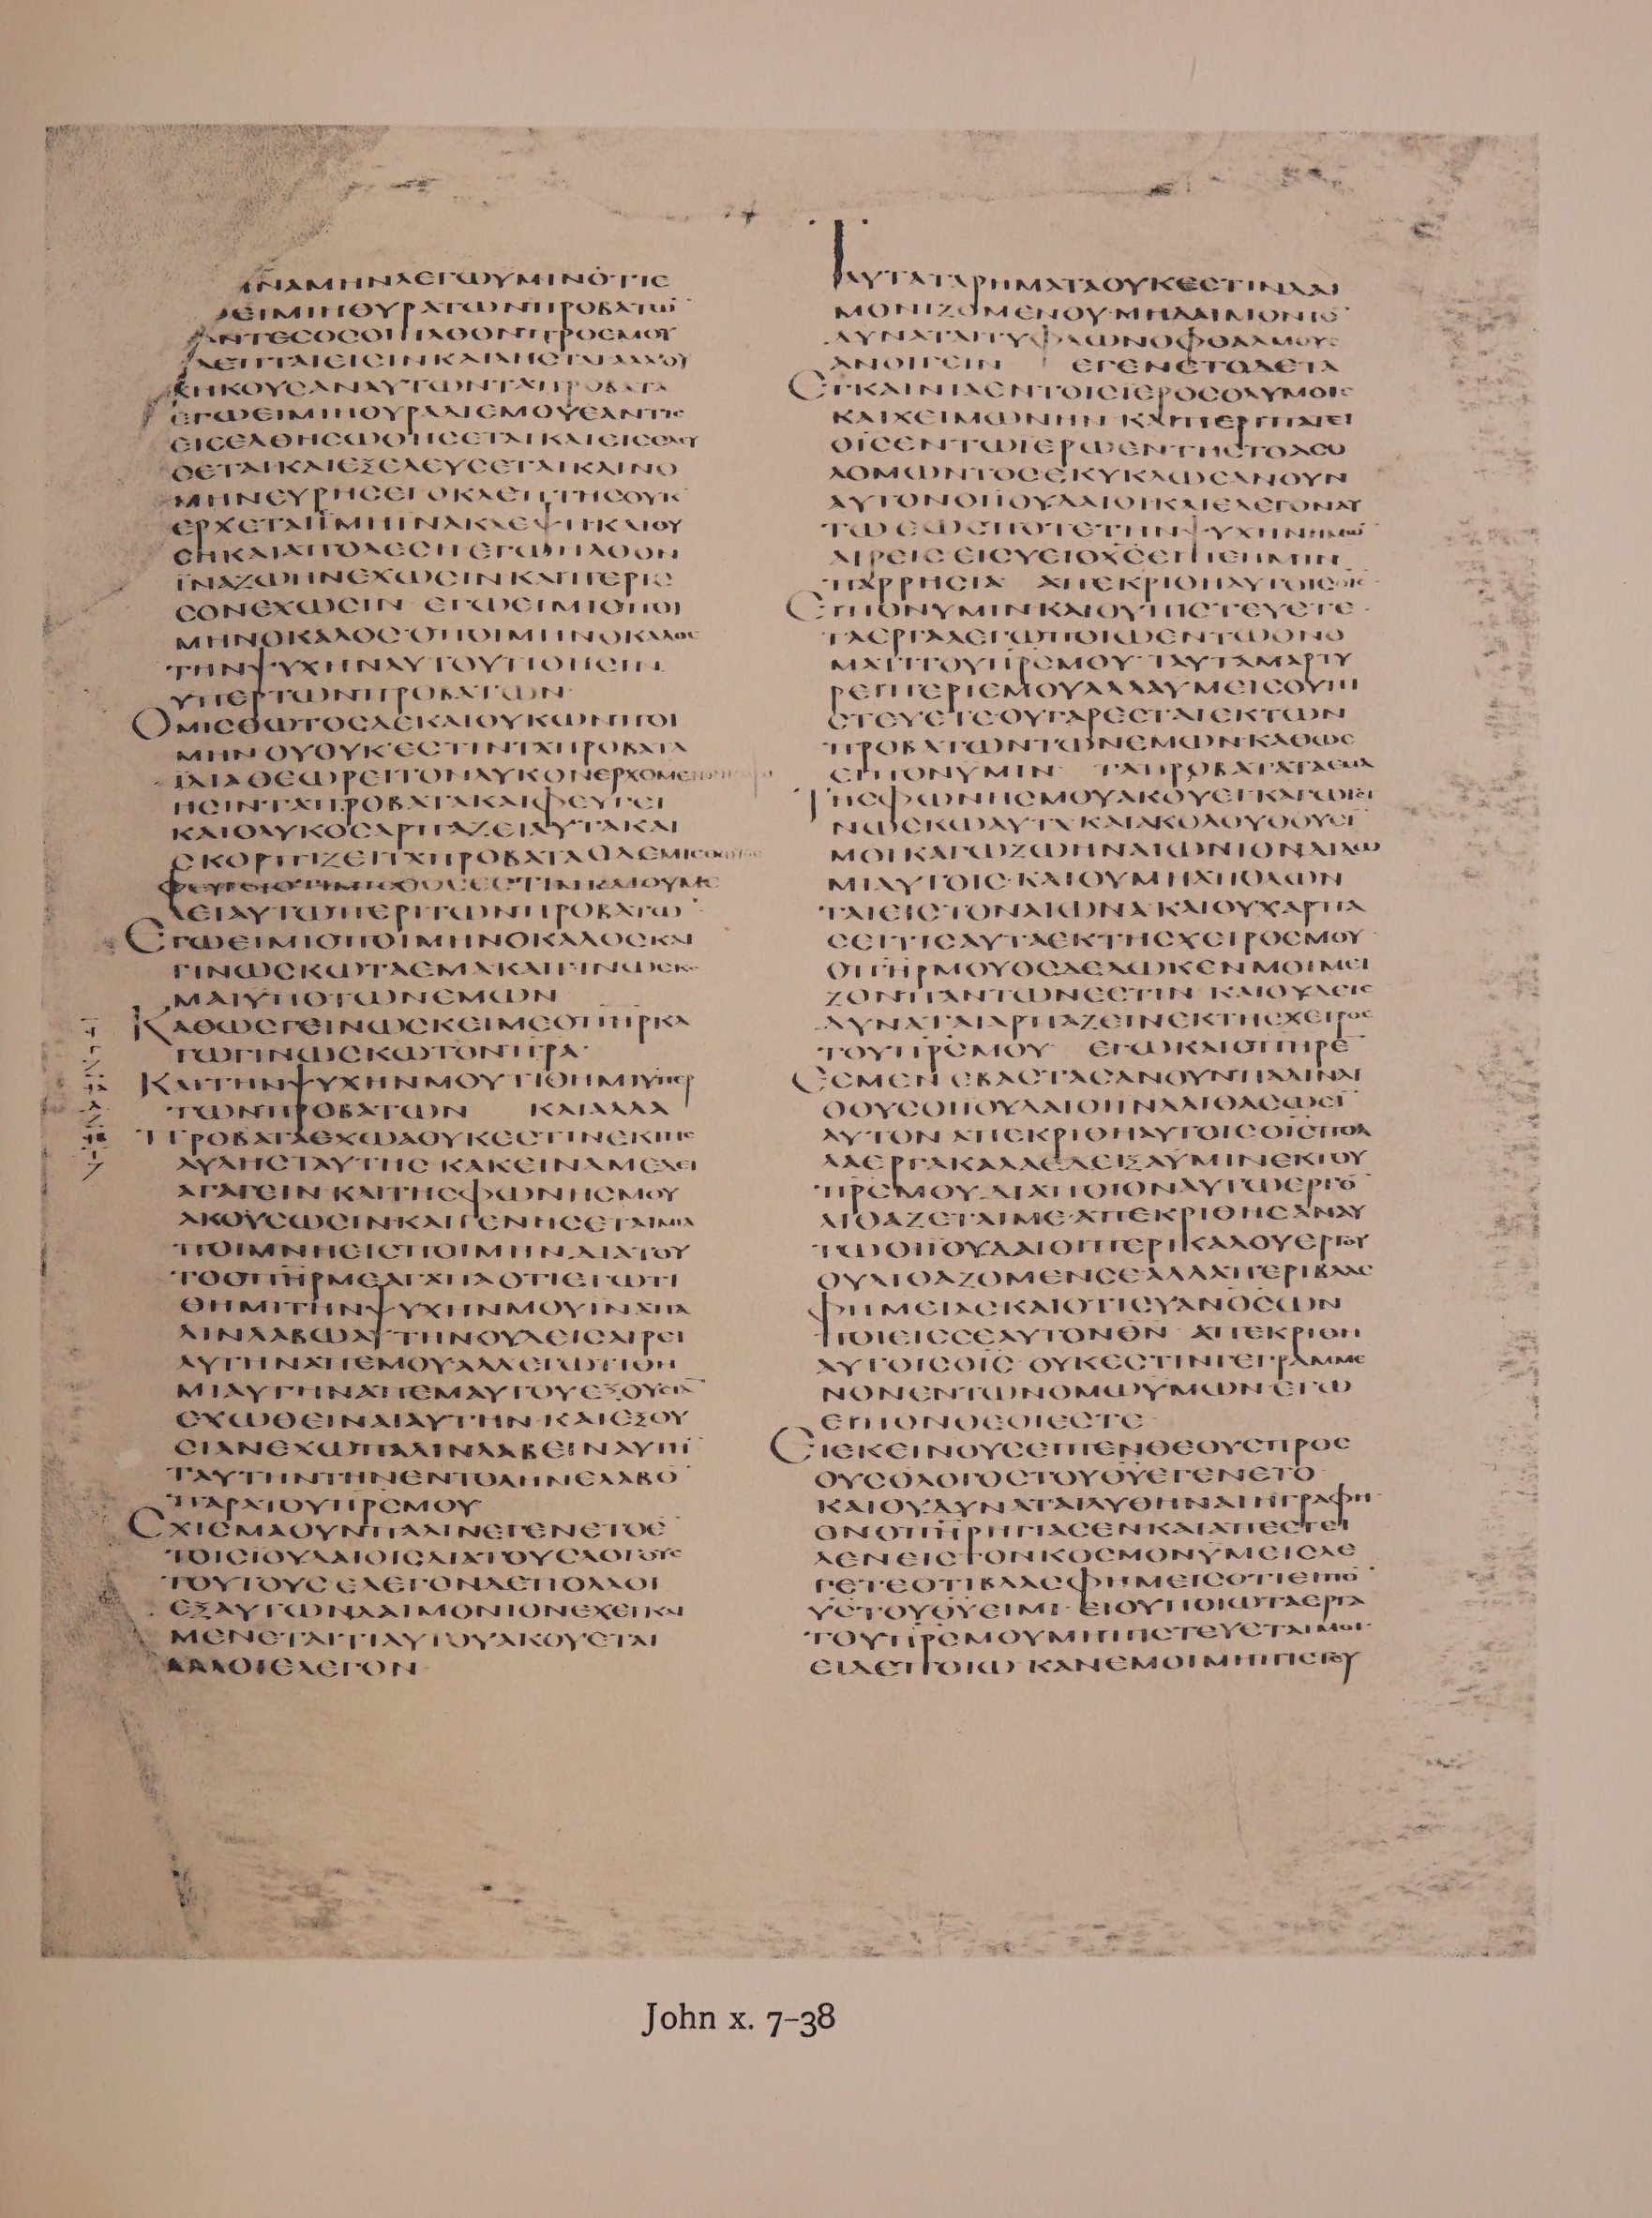 ΗΝΑΜΗΝΛΕΓΩΥΜΙΝΟΤΙΕ
ΕΙΜΙΗΘΥΡΑΤΩΝΠΡΟΒΑΤΩ̅
ΑΝΤΕϹΟϹΟΙΗΛΘΟΝΠΡΟΕΜΟΥ
ΛΕΠΤΑΙΕΙϹΙΝΚΑΙΛΗϹΤΑΙΑΛΛΟΥ
ΚΗΚΟΥϹΑΝΑΥΤΩΝΤΑΠΡΟΒΑΤΑ
ΕΓΩΕΙΜΙΗΘΥΡΑΔΙΕΜΟΥΕΑΝΤΙϹ
ΕΙϹΕΛΘΗϹΩΘΗϹΕΤΑΙΚΑΙΕΙϹΕΛΕΥ
ϹΕΤΑΙΚΑΙΕΞΕΛΕΥϹΕΤΑΙΚΑΙΝΟ
ΜΗΝΕΥΡΗϹΕΙΟΚΛΕΠΤΗϹΟΥΚ
ΕΡΧΕΤΑΙΕΙΜΗΙΝΑΚΛΕΨΗΚΑΙΘΥ
ϹΗΚΑΙΑΠΟΛΕϹΗΕΓΩΗΛΘΟΝ
ΪΝΑΖΩΗΝΕΧΩϹΙΝΚΑΙΠΕΡΙϹ
ϹΟΝΕΧΩϹΙΝ ΕΓΩΕΙΜΙΟΠΟΙ
ΜΗΝΟΚΑΛΟϹΟΠΟΙΜΗΝΟΚΑΛΟϹ
ΤΗΝΨΥΧΗΝΑΥΤΟΥΤΙΘΗϹΙΝ
ΥΠΕΡΤΩΝΠΡΟΒΑΤΩΝ
ΟΜΙϹΘΩΤΟϹΔΕΚΑΙΟΥΚΩΝΠΟΙ
ΜΗΝ ΟΥΟΥΚΕϹΤΙΝΤΑΠΡΟΒΑΤΑ
ΙΔΙΑΘΕΩΡΕΙΤΟΝΛΥΚΟΝΕΡΧΟΜΕΝΟΝ
ΗϹΙΝΤΑΠΡΟΒΑΤΑΚΑΙΦΕΥΓΕΙ
ΚΑΙΟΛΥΚΟϹΑΡΠΑΖΕΙΑΥΤΑΚΑΙ
ϹΚΟΡΠΙΖΕΙΤΑΠΡΟΒΑΤΑΟΔΕΜΙϹΘΩΤΟϹ
ΦΕΥΓΕΙΟΤΙΜΙϹΘΩΤΟϹΕϹΤΙΝΚΑΙΟΥΜΕ
ΛΕΙΑΥΤΩΠΕΡΙΤΩΝΠΡΟΒΑΤΩ̅
ΕΓΩΕΙΜΙΟΠΟΙΜΗΝΟΚΑΛΟϹΚΑΙ
ΓΙΝΩϹΚΩΤΑΕΜΑΚΑΙΓΙΝΩϹΚΟ
ΜΑΙΥΠΟΤΩΝΕΜΩΝ
ΚΑΘΩϹΓΕΙΝΩϹΚΕΙΜΕΟΠΗΡΚΑ
ΓΩΓΙΝΩϹΚΩΤΟΝΠΡΑ
ΚΑΙΤΗΝΨΥΧΗΝΜΟΥΤΙΘΗΜΙΥΠΕΡ
ΤΩΝΠΡΟΒΑΤΩΝ ΚΑΙΑΛΛΑ
ΠΡΟΒΑΤΑΕΧΩΑΟΥΚΕϹΤΙΝΕΚΤΗϹ
ΑΥΛΗϹΤΑΥΤΗϹ ΚΑΚΕΙΝΑΜΕΔΕΙ
ΑΓΑΓΕΙΝ ΚΑΙΤΗϹΦΩΝΗϹΜΟΥ
ΑΚΟΥϹΩϹΙΝΚΑΙΓΕΝΗϹΕΤΑΙΜΙΑ
ΠΟΙΜΝΗΕΙϹΠΟΙΜΗΝ ΔΙΑΤΟΥ
ΤΟΟΠΗΡΜΕΑΓΑΠΑΟΤΙΕΓΩΤΙ
ΘΗΜΙΤΗΝΨΥΧΗΝΜΟΥΙΝΑΠΑ
ΛΙΝΛΑΒΩΑΥΤΗΝΟΥΔΕΙϹΑΙΡΕΙ
ΑΥΤΗΝΑΠΕΜΟΥΑΛΛΕΓΩΤΙΘΗ
ΜΙΑΥΤΗΝΑΠΕΜΑΥΤΟΥΕΞΟΥϹΙΑ̅
ΕΧΩΘΕΙΝΑΙΑΥΤΗΝ ΚΑΙΕΞΟΥ
ϹΙΑΝΕΧΩΠΑΛΙΝΛΑΒΕΙΝΑΥΤΗ̅
ΤΑΥΤΗΝΤΗΝΕΝΤΟΛΗΝΕΛΑΒΟ̅
ΠΑΡΑΤΟΥΠΡϹΜΟΥ
ϹΧΙϹΜΑΟΥΝΠΑΛΙΝΕΓΕΝΕΤΟΕ̅
ΤΟΙϹΙΟΥΔΑΙΟΙϹΔΙΑΤΟΥϹΛΟΓΟΥϹ
ΤΟΥΤΟΥϹ ΕΛΕΓΟΝΔΕΠΟΛΛΟΙ
ΕΞΑΥΤΩΝΔΑΙΜΟΝΙΟΝΕΧΕΙΚΑΙ
ΜΕΝΕΤΑΙΤΙΑΥΤΟΥΑΚΟΥΕΤΑΙ
ΑΛΛΟΙΕΛΕΓΟΝ
ΤΑΥΤΑΤΑΡΗΜΑΤΑΟΥΚΕϹΤΙΝΔΑΙ
ΜΟΝΙΖΟΜΕΝΟΥ ΜΗΔΑΙΜΟΝΙΟ̅
ΔΥΝΑΤΑΙΤΥΦΛΩΝΟΦΘΑΛΜΟΥϹ
ΑΝΟΙΓΕΙΝ ΕΓΕΝΕΤΟΔΕΤΑ
ΕΓΚΑΙΝΙΑΕΝΤΟΙϹΙΕΡΟϹΟΛΥΜΟΙϹ
ΚΑΙΧΕΙΜΩΝΗΝ ΚΑΙΠΕΡΙΠΑΤΕΙ
ΟΙϹΕΝΤΩΙΕΡΩΕΝΤΗϹΤΟΑϹΟ
ΛΟΜΩΝΤΟϹΕΚΥΚΛΩϹΑΝΟΥΝ
ΑΥΤΟΝΟΙΙΟΥΔΑΙΟΙΚΑΙΕΛΕΓΟΝΑΥ
ΤΩ ΕΩϹΠΟΤΕΤΗΝΨΥΧΗΝΗΜΩ̅
ΑΙΡΕΙϹ ΕΙϹΥΕΙΟΧϹΕΙΠΕΗΜΙΝ
ΠΑΡΡΗϹΙΑ ΑΠΕΚΡΙΘΗΑΥΤΟΙϹΟΙϹ
ΕΙΠΟΝΥΜΙΝΚΑΙΟΥΠΙϹΤΕΥΕΤΕ
ΤΑΕΡΓΑΑΕΓΩΠΟΙΩΕΝΤΩΟΝΟ
ΜΑΤΙΤΟΥΠΡϹΜΟΥ ΤΑΥΤΑΜΑΡΤΥ
ΡΕΙΠΕΡΙΕΜΟΥΑΛΛΑΥΜΕΙϹΟΥΠΙ
ϹΤΕΥΕΤΕΟΥΓΑΡΕϹΤΑΙΕΚΤΩΝ
ΠΡΟΒΑΤΩΝΤΩΝΕΜΩΝΚΑΘΩϹ
ΕΙΠΟΝΥΜΙΝ ΤΑΠΡΟΒΑΤΑΤΑΕΜΑ
ΤΗϹΦΩΝΗϹΜΟΥΑΚΟΥΕΙΚΑΓΩΓΕΙ
ΝΩϹΚΩΑΥΤΑ ΚΑΙΑΚΟΛΟΥΘΟΥϹΙ
ΜΟΙΚΑΓΩΖΩΗΝΑΙΩΝΙΟΝΔΙΔΩ
ΜΙΑΥΤΟΙϹ ΚΑΙΟΥΜΗΑΠΟΛΩΝ
ΤΑΙΕΙϹΤΟΝΑΙΩΝΑ ΚΑΙΟΥΧΑΡΠΑ
ϹΕΙΤΙϹΑΥΤΑΕΚΤΗϹΧΕΙΡΟϹΜΟΥ
ΟΠΗΡΜΟΥΟϹΔΕΔΩΚΕΝΜΟΙΜΕΙ
ΖΟΝΠΑΝΤΩΝΕϹΤΙΝ ΚΑΙΟΥΔΕΙϹ
ΔΥΝΑΤΑΙΑΡΠΑΖΕΙΝΕΚΤΗϹΧΕΙΡΟϹ
ΤΟΥΠΡϹΜΟΥ ΕΓΩΚΑΙΟΠΗΡΕ̅
ΕϹΜΕΝ ΕΒΑϹΤΑϹΑΝΟΥΝΠΑΛΙΝΛΙ
ΘΟΥϹΟΙΙΟΥΔΑΙΟΙΙΝΑΛΙΘΑϹΩϹΙ
ΑΥΤΟΝ ΑΠΕΚΡΙΘΗΑΥΤΟΙϹΟΙϹΠΟΛ
ΛΑΕΡΓΑΚΑΛΑΕΔΕΙΞΑΥΜΙΝΕΚΤΟΥ
ΠΡϹΜΟΥ ΔΙΑΠΟΙΟΝΑΥΤΩΕΡΓΟ̅
ΛΙΘΑΖΕΤΑΙΜΕ ΑΠΕΚΡΙΘΗϹΑΝΑΥ
ΤΩΟΙΙΟΥΔΑΙΟΙΠΕΡΙΚΑΛΟΥΕΡΓΟΥ
ΟΥΛΙΘΑΖΟΜΕΝϹΕΑΛΛΑΠΕΡΙΒΛΑϹ
ΦΗΜΕΙΑϹΚΑΙΟΤΙϹΥΑΝΟϹΩΝ
ΠΟΙΕΙϹϹΕΑΥΤΟΝΘΝ ΑΠΕΚΡΙΘΗ
ΑΥΤΟΙϹΟΙϹ ΟΥΚΕϹΤΙΝΓΕΓΡΑΜΜΕ
ΝΟΝΕΝΤΩΝΟΜΩΥΜΩΝΕΓΩ
ΕΙΠΟΝΘΕΟΙΕϹΤΕ
ΕΙΕΚΕΙΝΟΥϹΕΙΠΕΝΘΕΟΥϹΠΡΟϹ
ΟΥϹΟΛΟΓΟϹΤΟΥΘΥΕΓΕΝΕΤΟ
ΚΑΙΟΥΔΥΝΑΤΑΙΛΥΘΗΝΑΙΗΓΡΑΦΗ
ΟΝΟΠΗΡΗΓΙΑϹΕΝΚΑΙΑΠΕϹΤΕΙ
ΛΕΝΕΙϹΤΟΝΚΟϹΜΟΝΥΜΕΙϹΛΕ
ΓΕΤΕΟΤΙΒΛΑϹΦΗΜΕΙϹΟΤΙΕΙΠΟ̅
ΥϹΤΟΥΘΥΕΙΜΙ ΕΙΟΥΠΟΙΩΤΑΕΡΓΑ
ΤΟΥΠΡϹΜΟΥΜΗΠΙϹΤΕΥΕΤΑΙΜΟΙ
ΕΙΔΕΠΟΙΩ ΚΑΝΕΜΟΙΜΗΠΙϹΤΕΥ
John x. 7–38